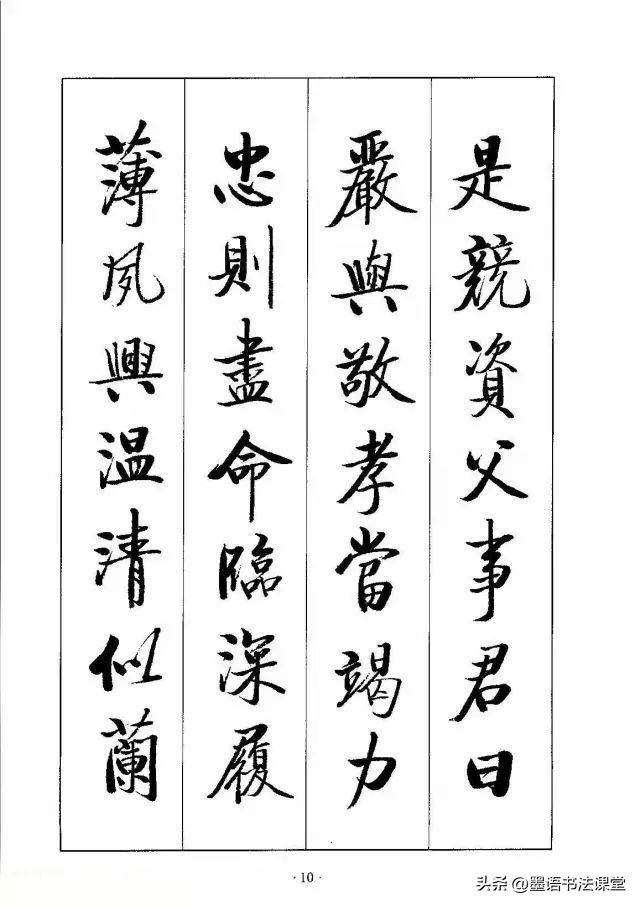 是競資父事君曰
嚴與敬孝當竭力
忠則盡命臨深履
薄夙興温清似蘭
· 10 ·
头条 @墨语书法课堂